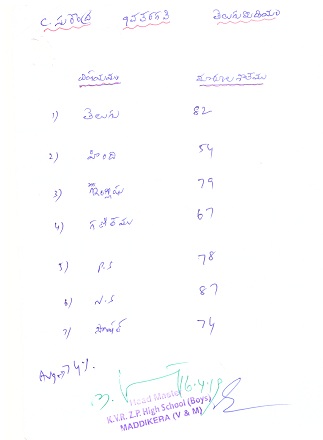 C. సురేంద్ర 9వతరగతి తెలుగుమీడియం
విషయము మార్కులశాతము
1) తెలుగు 82
2) హింది 54
3) ఇంగ్లీషు 79
4) గణితము 67
5) P.S 78
6) N.S 87
7) సోషల్ 74
Avg 74%
16.4.19
Head Master
K.V.R. Z.P. High School (Boys)
MADDIKERA (V & M)